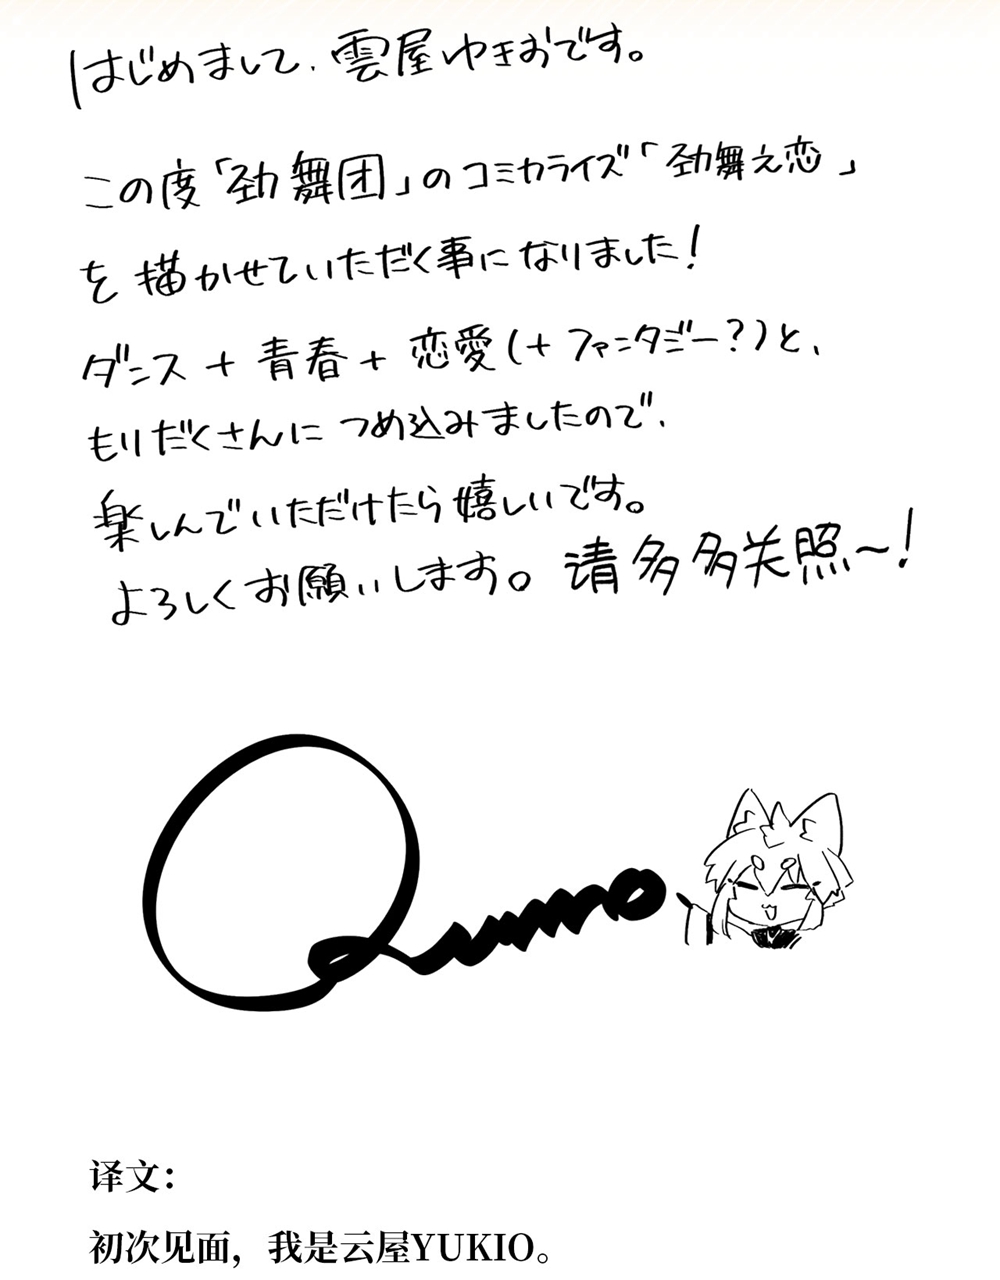 はじめまして、雲屋ゆきおです。
この度「劲舞团」のコミカライズ「劲舞之恋」
を描かせていただく事になりました!
ダンス+青春+恋愛(+ファンタジー?)と、
もりだくさんにつめ込みましたので、
楽しんでいただけたら嬉しいです。
よろしくお願いします。请多多关照~!
译文：
初次见面，我是云屋YUKIO。